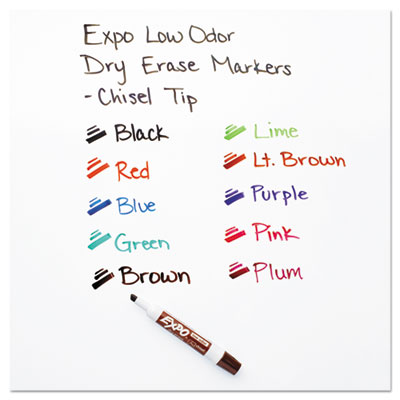 Expo Low Odor
Dry Erase Markers
- Chisel Tip
Black
Red
Blue
Green
Brown
Lime
Lt. Brown
Purple
Pink
Plum
EXPO